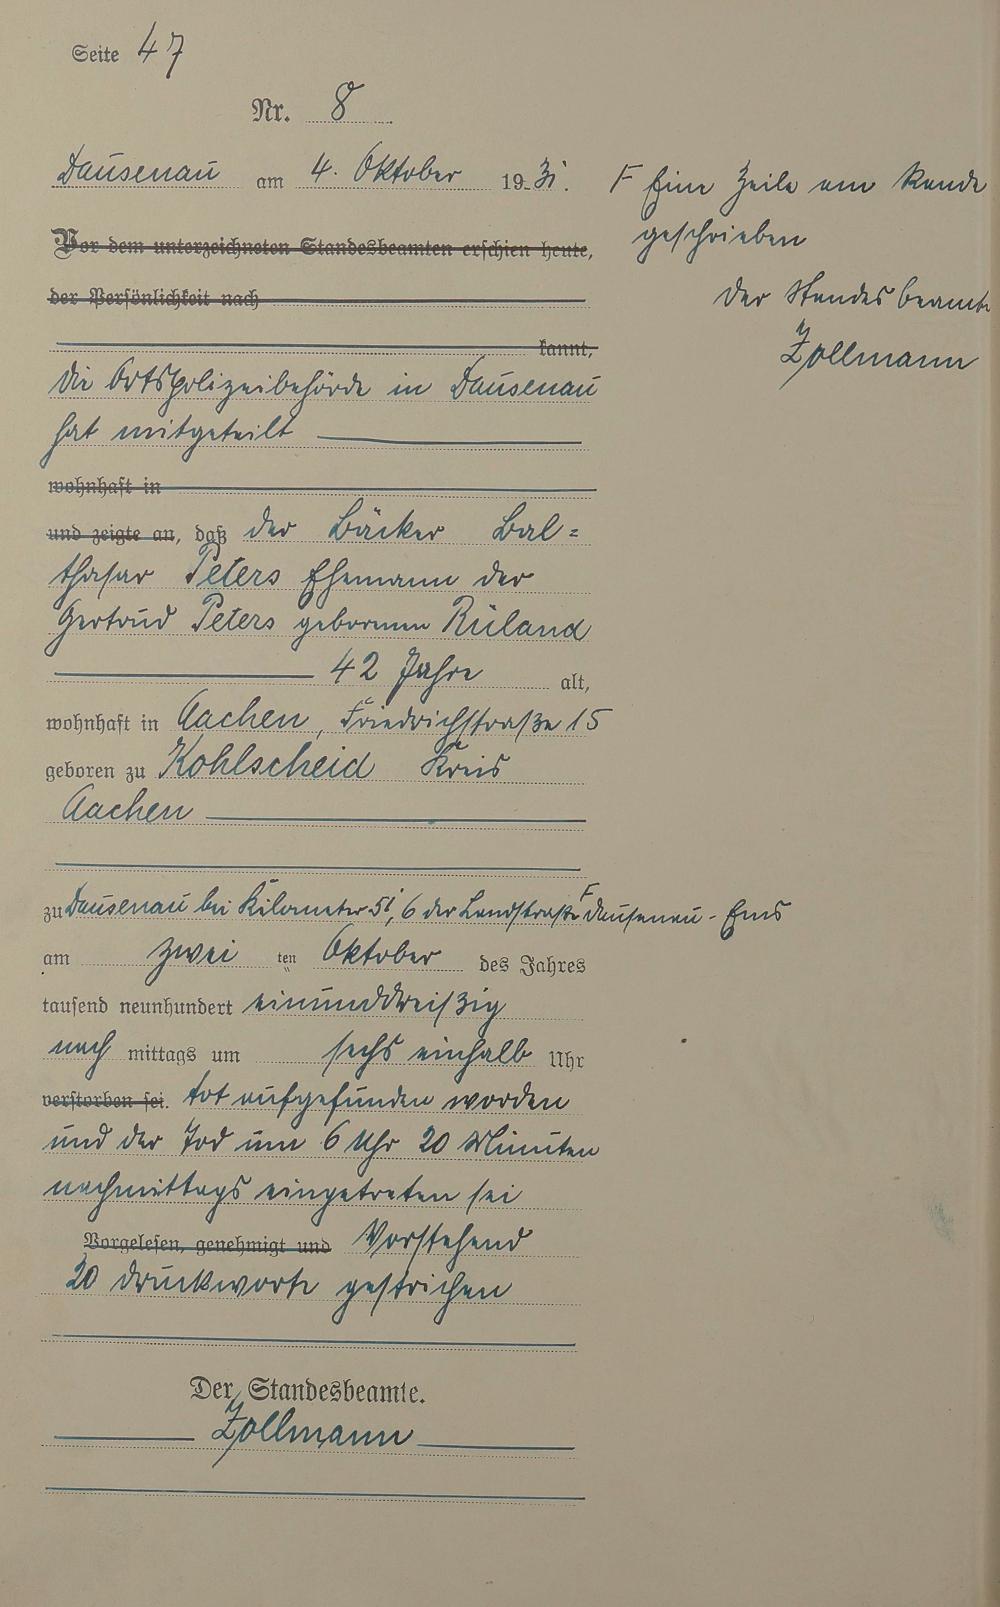 Seite 47
Nr. 8
Dausenau am 4. Oktober 1931.
Vor dem unterzeichneten Standesbeamten erschien heute,
der Persönlichkeit nach
kannt,
Die Ortspolizeibehörde in Dausenau
hat mitgeteilt
wohnhaft in
und zeigte an, daß der Bäcker Bal=
thasar Peters Ehemann der
Gertrud Peters geborenen Rüland
42 Jahre alt,
wohnhaft in Aachen, Friedrichstraße 15
geboren zu Kohlscheid Kreis
Aachen
zu Dausenau bei Kilometer 51,6 der Landstraße F Dausenau - Ems
am zwei ten Oktober des Jahres
tausend neunhundert einunddreißzig
nach mittags um sechs einhalb Uhr
verstorben sei. tot aufgefunden worden
und der Tod um 6 Uhr 20 Minuten
nachmittags eingetreten sei
Vorgelesen, genehmigt und Vorstehend
20 Druckworte gestrichen
Der Standesbeamte.
Zollmann
F Eine Zeile am Rande
geschrieben
Der Standesbeamte
Zollmann